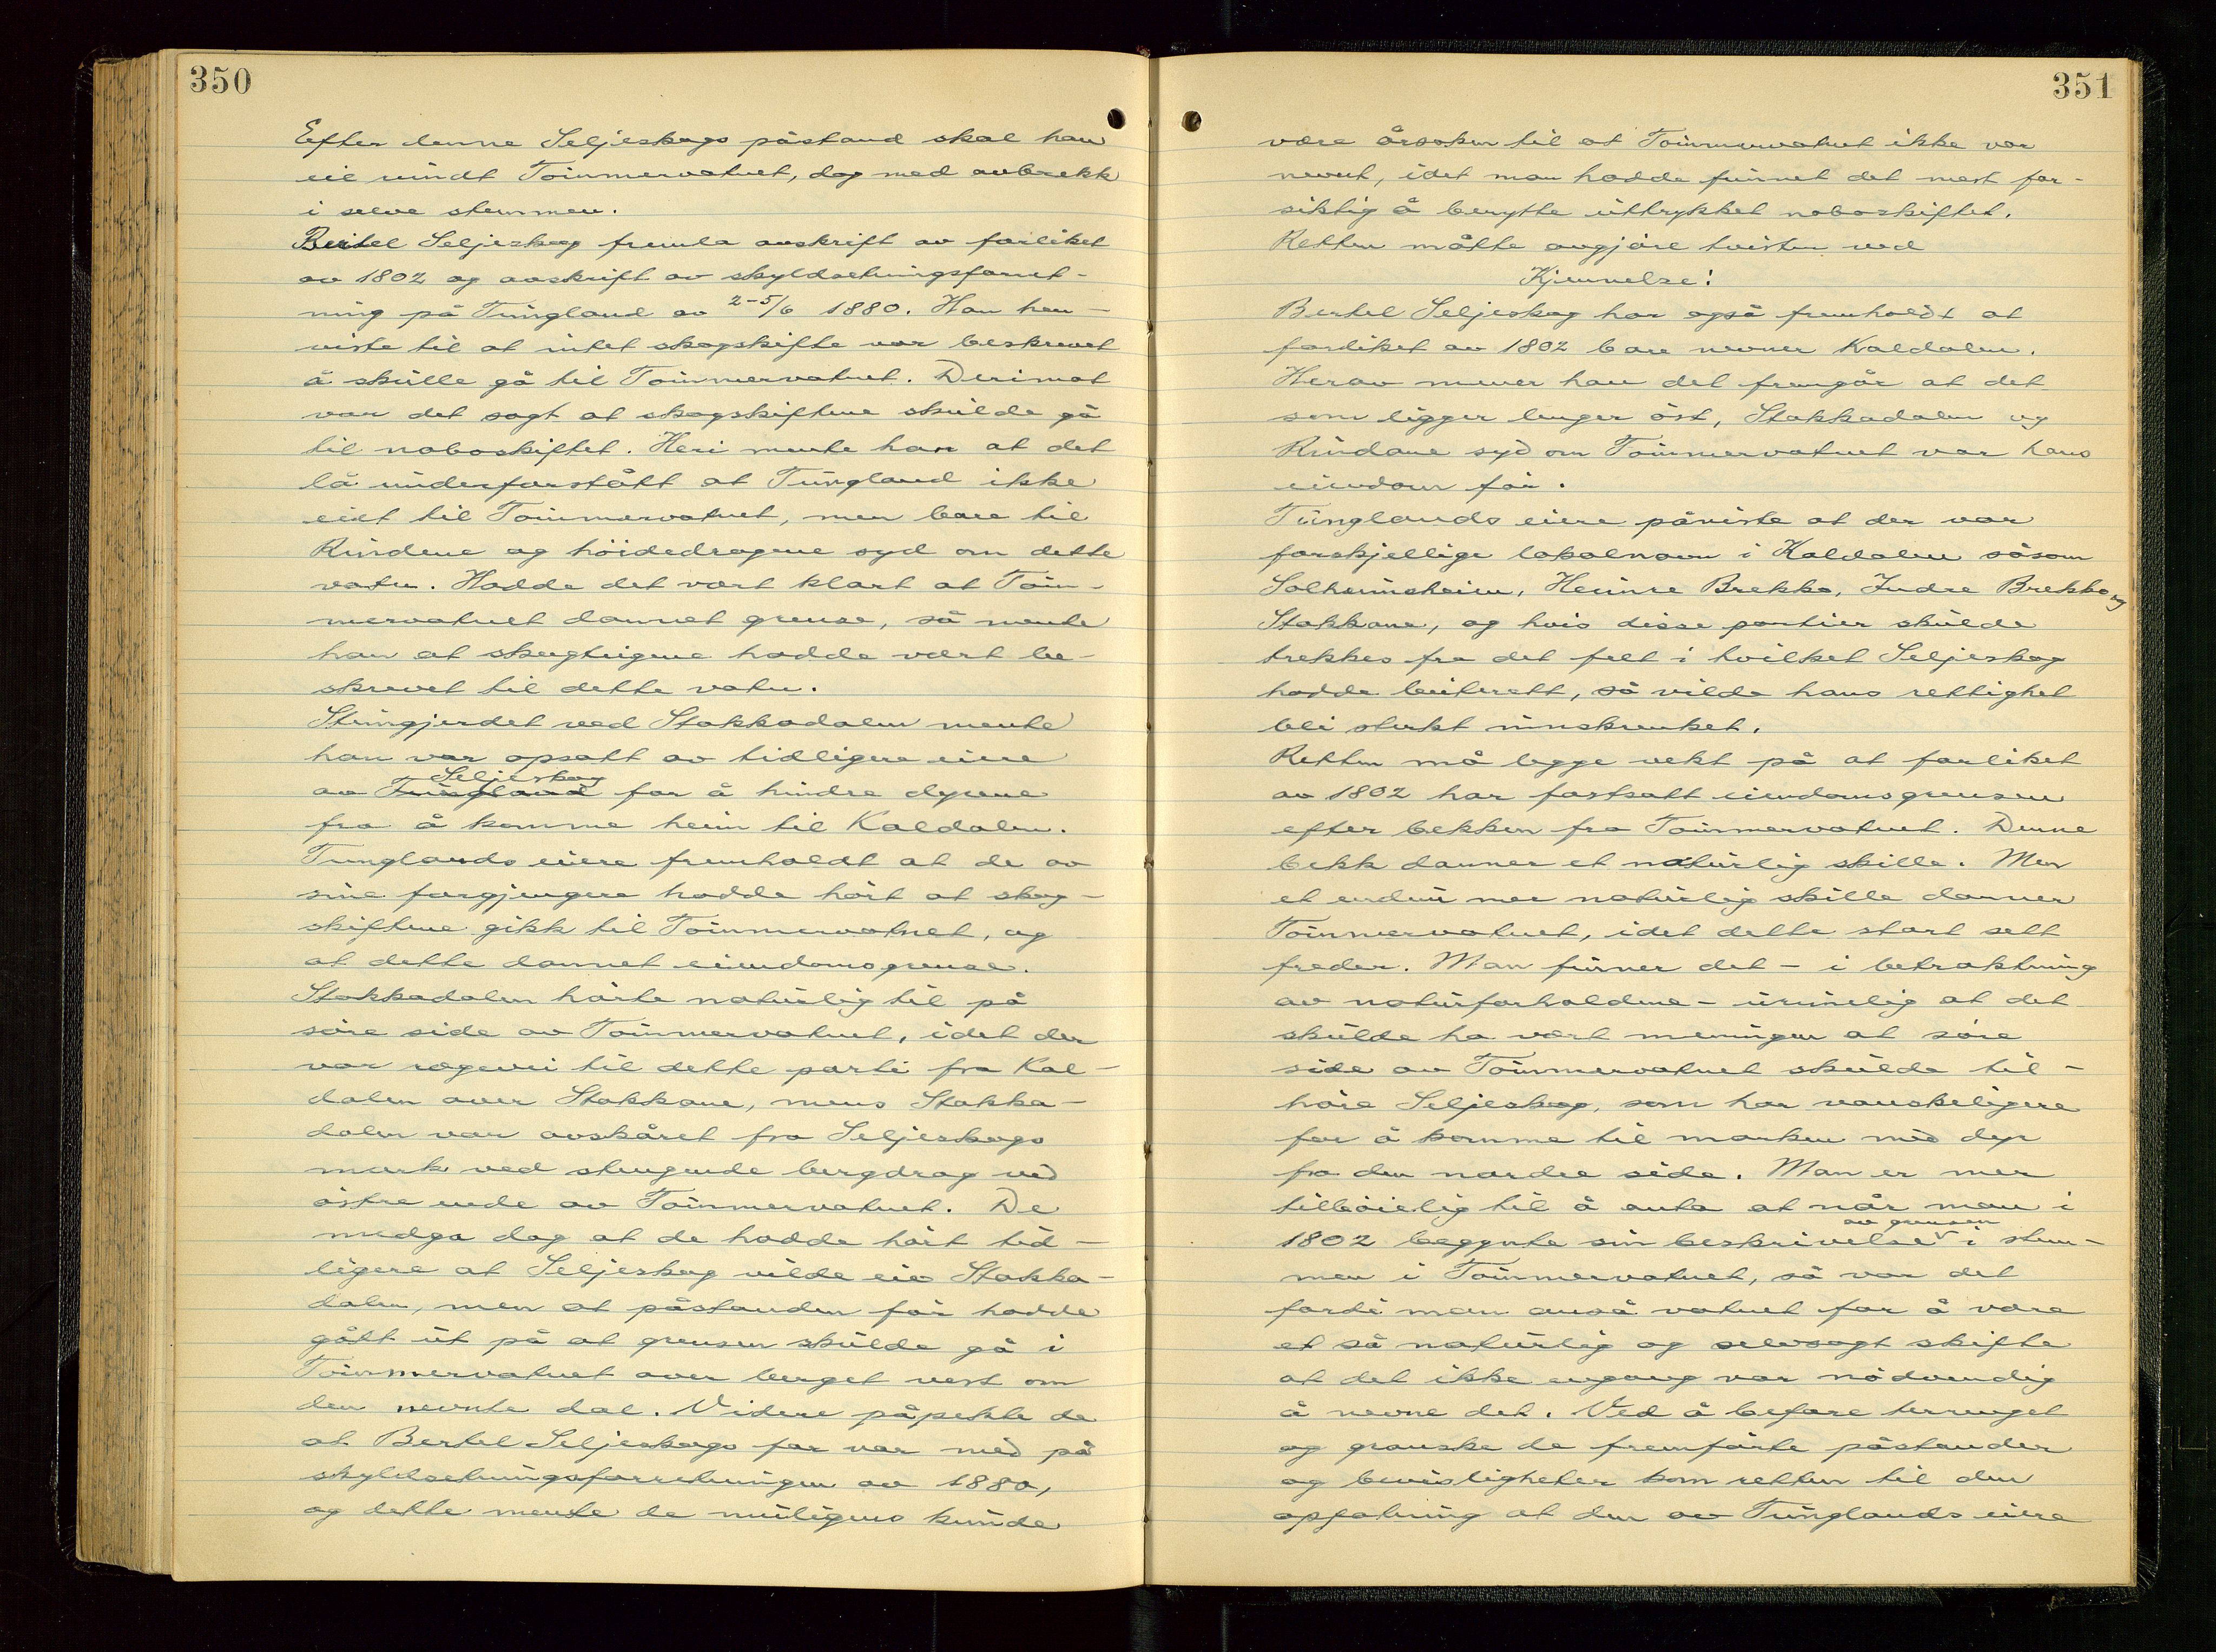 350
Efter denne Seljeskogs påstand skal han
eie rundt Tømmervatnet, dog med avbrekk
i selve stemmen.
Bertel Seljeskog fremla avskrift av forliket
av 1802 og avskrift av skyldsetningsforret-
ning på Tungland av 2-5/6 1880. Han hen-
viste til at intet skogskifte var beskrevet
å skulle gå til Tømmervatnet. Derimot
var det sagt at skogskiftene skulde gå
til naboskiftet. Heri mente han at det
lå underforstått at Tungland ikke
eiet til Tømmervatnet, men bare til
Rindene og höidedragene syd om dette
vatn. Hadde det vært klart at Töm-
mervatnet dannet grense, så mente
han at skogteigene hadde vært be-
skrevet til dette vatn.
Steingjerdet ved Stakkadalen mente
han var opsatt av tidligere eiere
av Tungland Seljeskog for å hindre dyrene
fra å komme heim til Kaldalen.
Tunglands eiere fremholdt at de av
sine forgjengere hadde hört at skog-
skiftene gikk til Tömmervatnet, og
at dette dannet eiendomsgrense.
Stakkadalen hörte naturlig til på
söre side av Tömmervatnet, idet der
var rægevei til dette parti fra Kal-
dalen over Stakkane, mens Stakka-
dalen var avskåret fra Seljeskogs
mark ved stengende bergdrag ved
östre ende av Tömmervatnet. De
medga dog at de hadde hört tid-
ligere at Seljeskog vilde eie Stakka-
dalen, men at påstanden för hadde
gått ut på at grensen skulde gå i
Tömmervatnet over berget vest om
den nevnte dal. Videre påpekte de
at Bertel Seljeskogs far var med på
skyldsetningsforretningen av 1880,
og dette mente de muligens kunde
351
være årsaken til at Tömmervatnet ikke var
nevnt, idet man hadde funnet det mest for-
siktig å benytte uttrykket naboskiftet.
Retten måtte avgjöre tvisten ved
Kjennelse:
Bertel Seljeskog har også fremholdt at
forliket av 1802 bare nevner Kaldalen.
Herav mener han det fremgår at det
som ligger lenger öst, Stakkadalen og
Rindane syd om Tömmervatnet var hans
eiendom för.
Tunglands eiere påviste at der var
forskjellige lokalnavn i Kaldalen såsom
Solheimsheien, Heimre Brekko, Indre Brekko og
Stakkane, og hvis disse partier skulde
trekkes fra det felt i hvilket Seljeskog
hadde beiterett, så vilde hans rettighet
bli sterkt innskrenket.
Retten må legge vekt på at forliket
av 1802 har fastsatt eiendomsgrensen
efter bekken fra Tömmervatnet. Denne
bekk danner et naturlig skille. Men
et endnu mer naturlig skille danner
Tömmervatnet, idet dette stort sett
freder. Man finner det - i betraktning
av naturforholdene - urimelig at det
skulde ha vært meningen at söre
side av Tömmervatnet skulde til-
höre Seljeskog, som har vanskeligere
for å komme til marken med dyr
fra den nordre side. Man er mer
tilböielig til å anta at når man i
1802 begynte sin beskrivelse av grensen i stem-
men i Tömmervatnet, så var det
fordi man anså vatnet for å være
et så naturlig og selvsagt skifte
at det ikke engang var nödvendig
å nevne det. Ved å befare terrenget
og granske de fremförte påstander
og bevisligheter kom retten til den
opfatning at den av Tunglands eiere